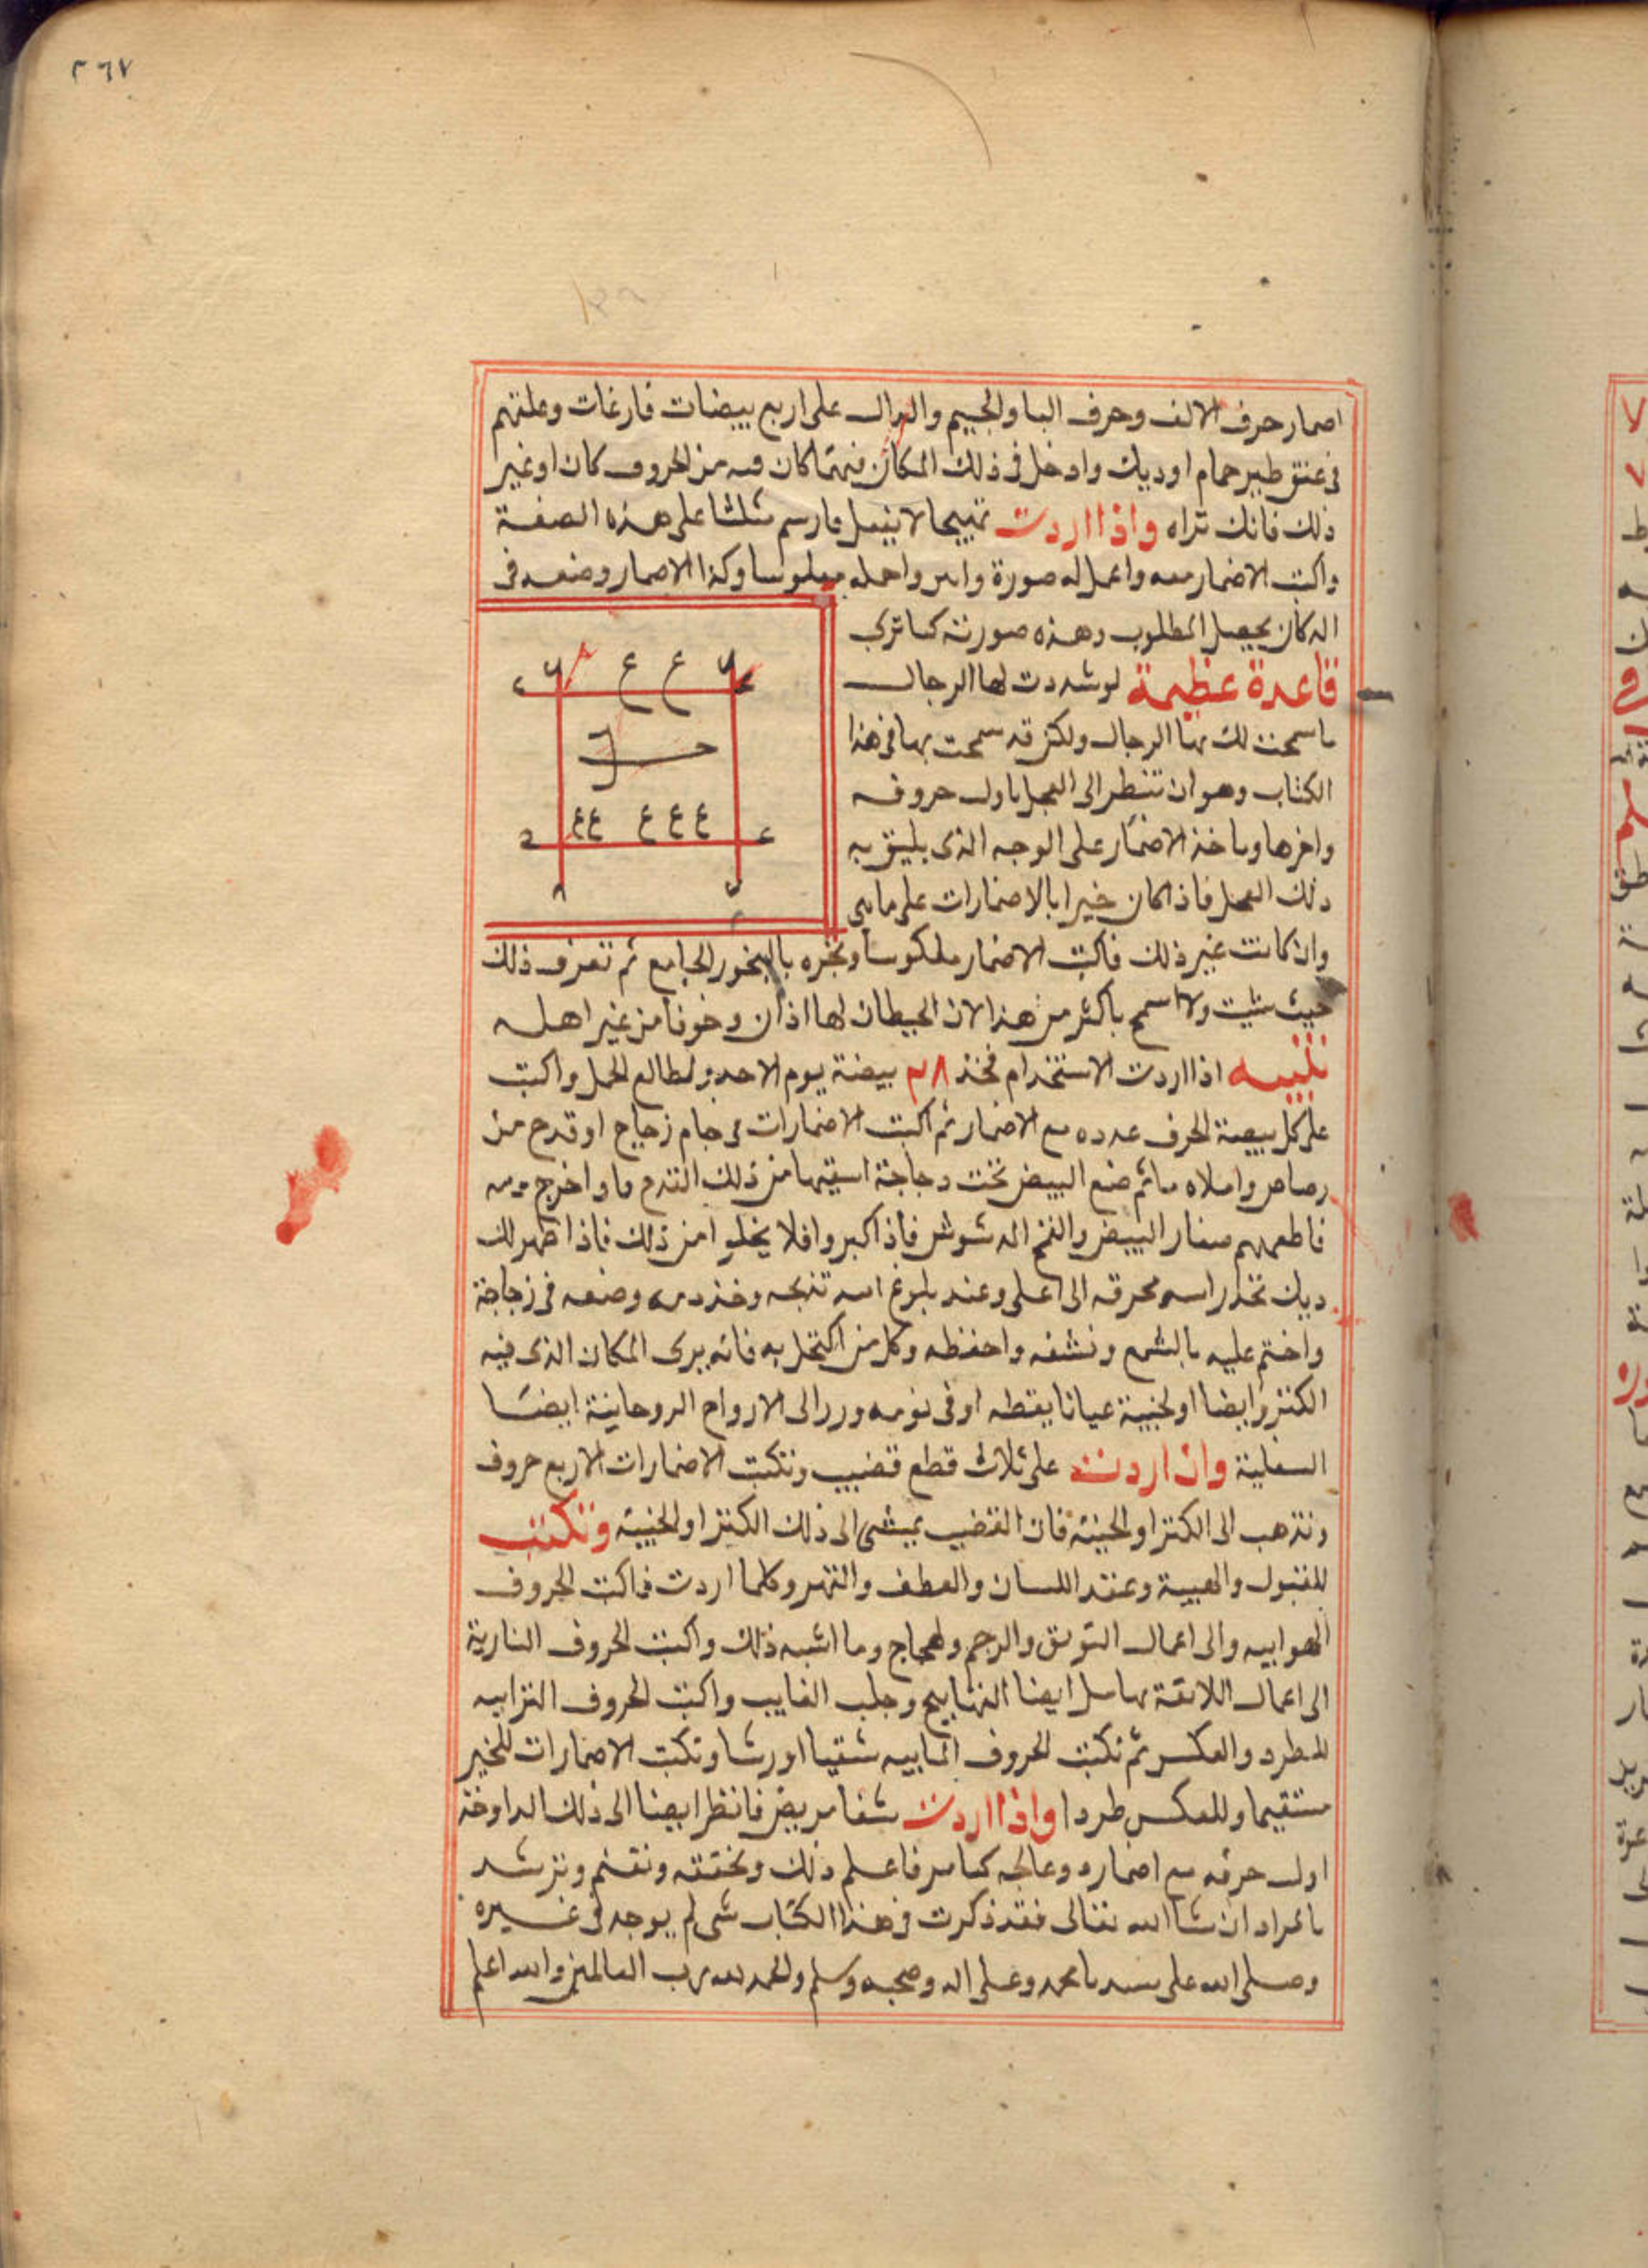 ٣٦٧
اضمار حرف الالف وحرف البا والجيم والدال على اربع بيضات فارغات وعلقهم
فى عنق طير حمام او ديك وادخل فى ذلك المكان فمهما كان فيه من الحروف كان او غير
ذلك فانك تراه واذا اردت تهييجا لا يبطل فارسم مثلثا على هذه الصفة
واكتب الاضمار معه واعمل له صورة واحمله وكذا الاضمار وضعه فى
المكان يحصل المطلوب وهذه صورته كما ترى
قاعدة عظيمة لو شددت لها الرحال
ما سمحت لك بها الرجال ولكن قد سمحت بها فى هذا
الكتاب وهو ان تنظر الى العمل باول حروفه
واخرها وياخذ الاضمار على الوجه الذى يليق به
ذلك العمل فاذا كان خيرا بالاضمارات على ما هى
وان كانت غير ذلك فاكتب الاضمار معكوسا وبخره بالبخور الجامع ثم تصرف ذلك
حيث شيت ولا اسمح باكثر من هذا لان الحيطان لها اذان وخوفا من غير اهله
تنبيه اذا اردت الاستخدام فخذ ٢٨ بيضة يوم الاحد ولطالع الحمل واكتب
على كل بيضة الحرف عدده مع الاضمار ثم اكتب الاضمارات فى جام زجاج او قدح من
رصاص واملاه ما ثم ضع البيض تحت دجاجة اسقيها من ذلك القدح ما واخرج منه
فاطعمهم صفار البيض فاذا كبروا فلا يخلوا من ذلك فاذا ظهر لك
ديك الى اعلى وعند بلوغ تذبحه وخذ دمه وضعه فى زجاجة
واختم عليه بالشمع ونشفه واحفظه وكل من اكتحل به فانه يرى المكان الذى فيه
الكنز وايضا او لخبية عيانا يقظه او فى نومه الى الارواح الروحانية ايضا
السفلية وان اردت على ثلاث قطع قضيب وتكتب الاضمارات الاربع حروف
وتذهب الى الكنز او الخبيئه فان القضيب يمشى الى ذلك الكنز او الخبيئة وتكتب
للقبول والهيبة وعقد اللسان والعطف والقهر وكلما اردت فاكتب الحروف
الهوابيه والى اعمال والرجم ولهجاج وما اشبه ذلك واكتب الحروف النارية
الى اعمال اللائقة بها مثل ايضا التهابيج وجلب الغايب واكتب الحروف الترابيه
للطرد والعكس ثم تكتب الحروف المابيه سقيا او رشا وتكتب الاضمارات للخير
مستقيما وللعكس طردا واذا اردت شفا مريض فانظر ايضا الى ذلك الدا وخذ
اول حرفه مع اضماره وعالجه كما مر فاعلم ذلك وتحققه وتفهم وترشد
بالمراد ان شا الله تعالى فقد ذكرت فى هذا الكتاب شى لم يوجد فى غيره
وصلى الله على سيدنا محمد وعلى اله وصحبه وسلم والحمد لله رب العالمين والله اعلم
ع ع
ع ع ع ع ع